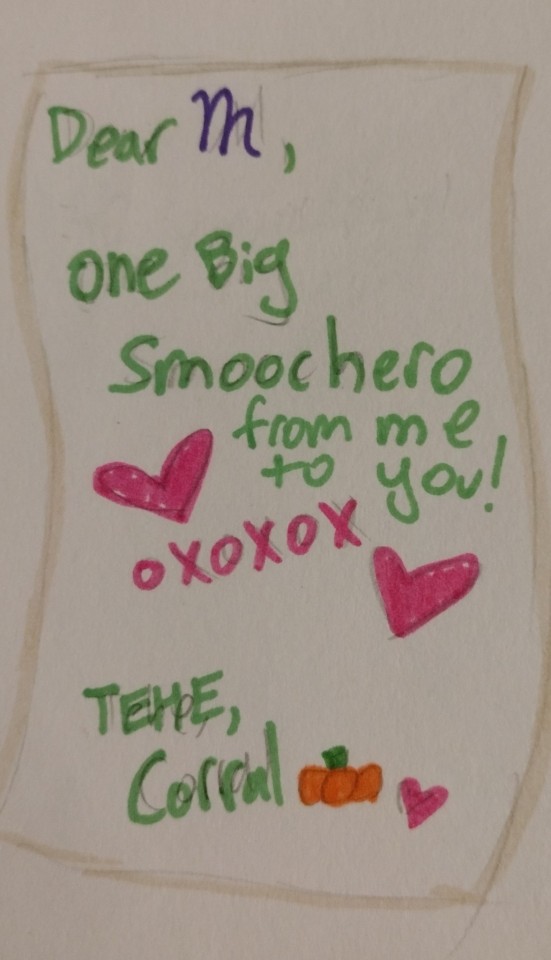 Dear M,
one Big
Smoochero
from me
to you!
oxoxox
TEHE,
Corral